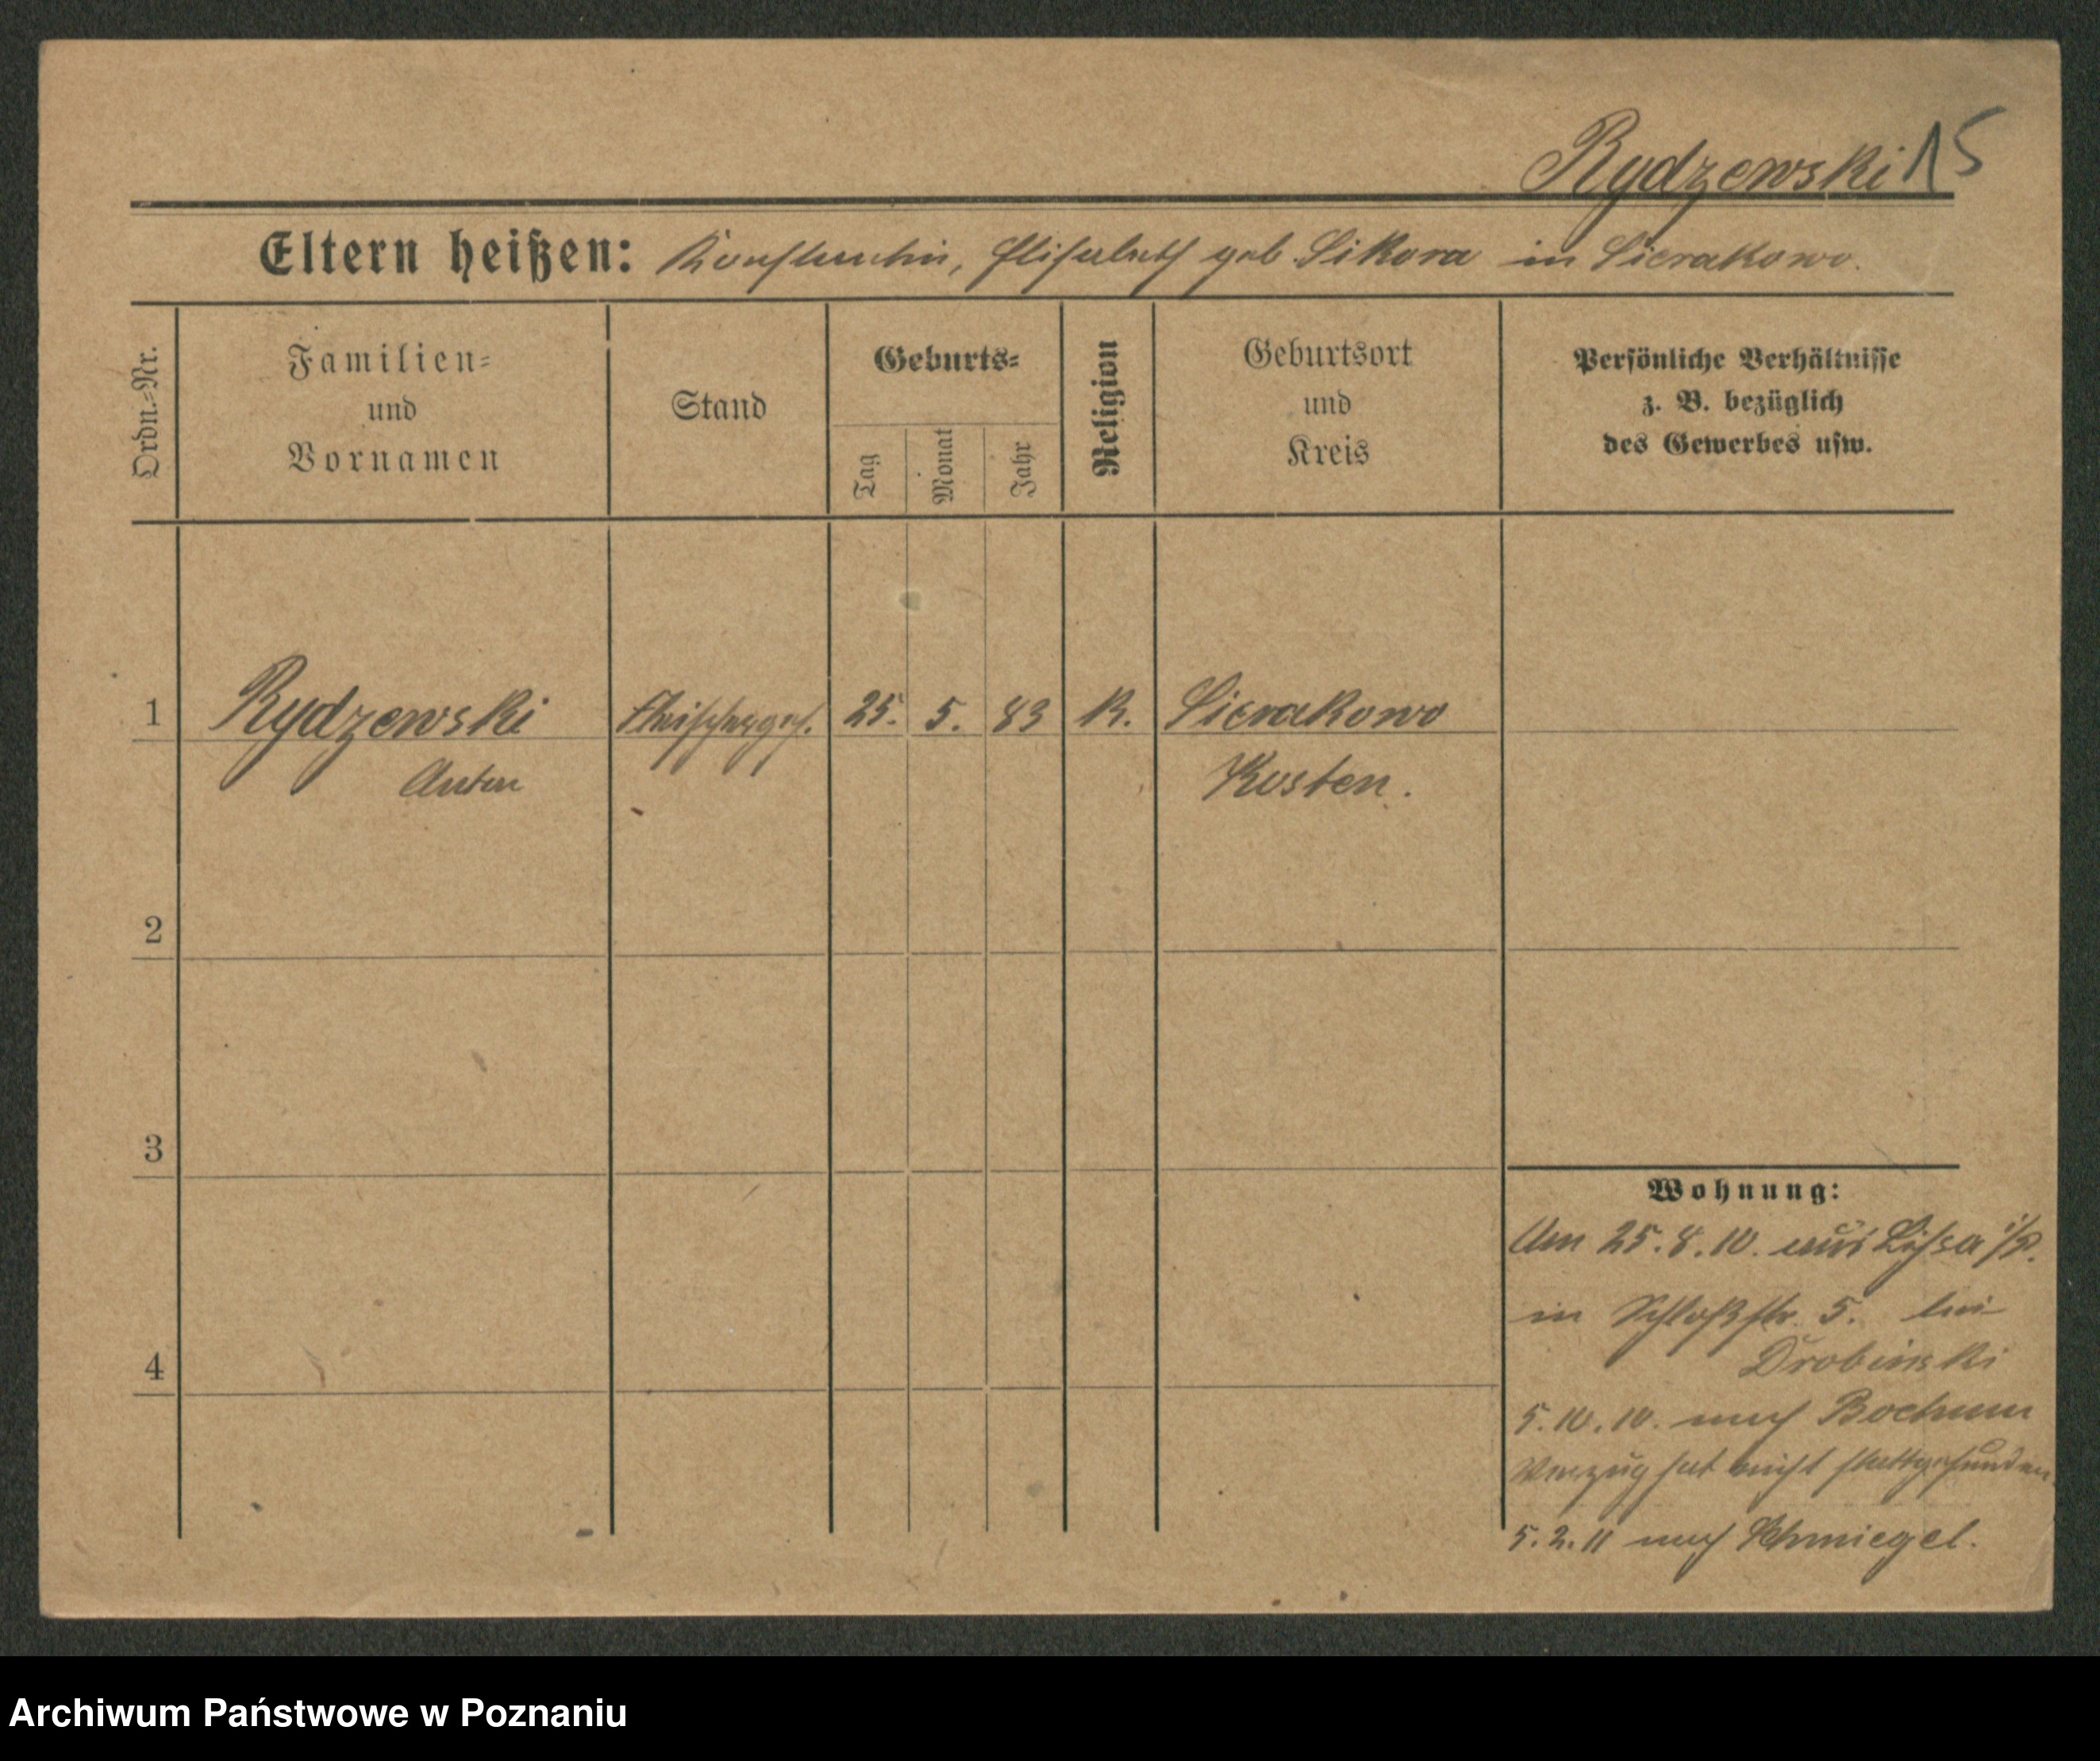 Rydzewski 15
Eltern heißen: Konstantin, Elisabeth geb. Sikora in Sierakowo.
Ordn.-Nr.
Familien-
und
Vornamen
Stand
Geburts-
Tag
Monat
Jahr
Religion
Geburtsort
und
Kreis
Persönliche Verhältnisse
z. B. bezüglich
des Gewerbes usw.
1 Rydzewski Fleischerges. 25. 5. 83 K. Sierakowo
Anton Kosten.
2
3
4
Wohnung:
Am 25.8.10. aus Lissa i/P.
in Schloßstr. 5. bei
Drobinski
5.10.10. nach Bochum
Verzug hat nicht stattgefunden
5.2.11 nach Schmiegel.
Archiwum Państwowe w Poznaniu